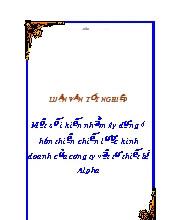 LUẬN VĂN TỐT NGHIỆP
Một số ý kiến nhằm xây dựng &
hoàn thiện chiến lược kinh
doanh của công ty vật tư thiết bị
Alpha